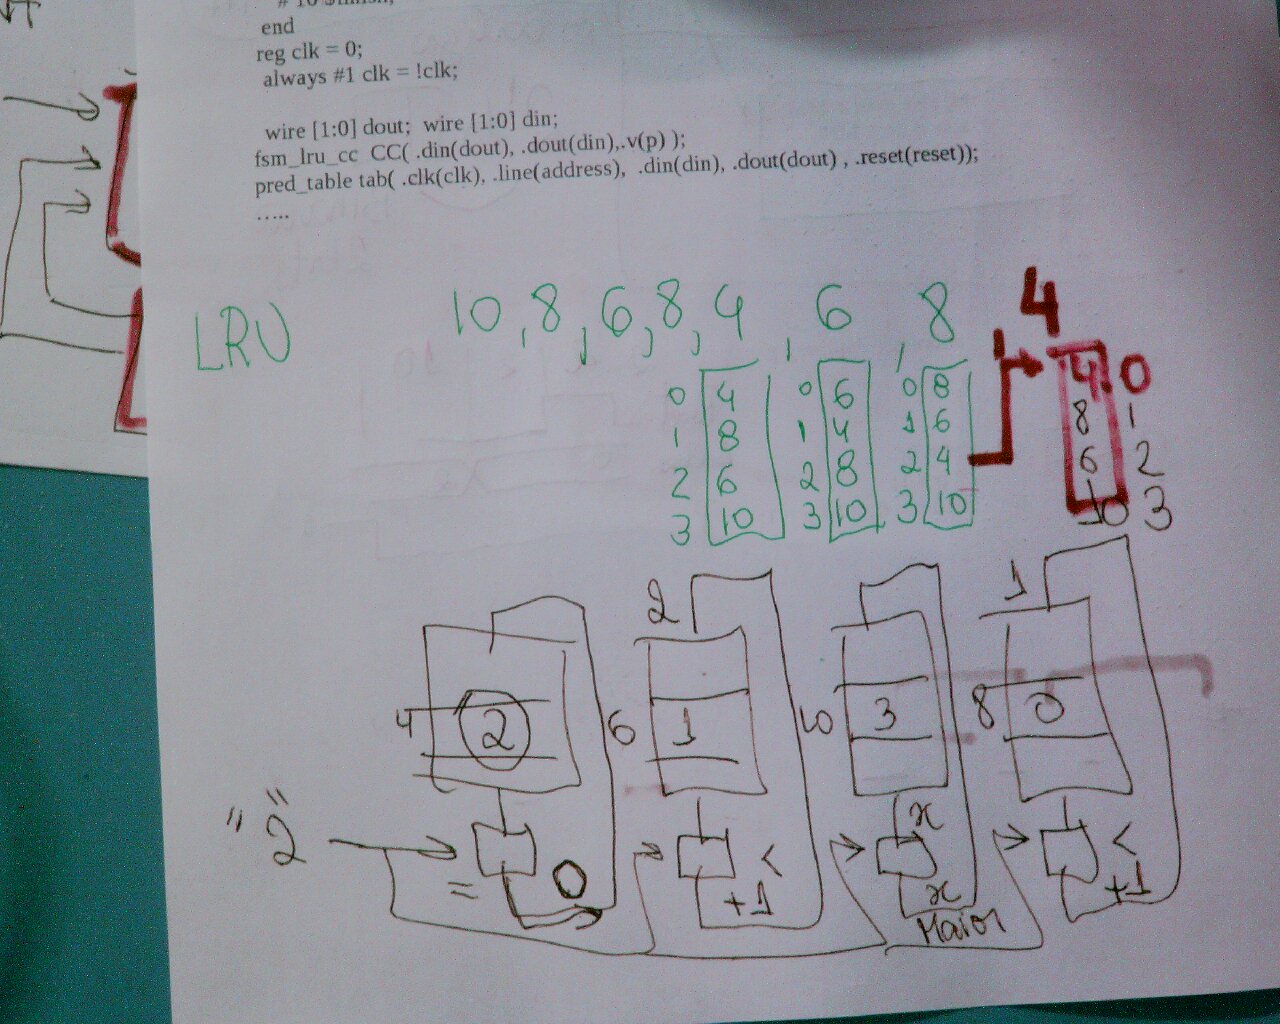 end
reg clk = 0;
always #1 clk = !clk;
wire [1:0] dout; wire [1:0] din;
fsm_lru_cc CC( .din(dout), .dout(din),.v(p) );
pred_table tab( .clk(clk), .line(address), .din(din), .dout(dout) , .reset(reset));
.....
LRU 10, 8, 6, 8, 4, 6, 8 4
0 4 0 6 0 8 4 0
1 8 1 4 1 6 8 1
2 6 2 8 2 4 6 2
3 10 3 10 3 10 10 3
2 1
4 2 6 1 10 3 8 0
"2" = 0 < +1 x x Maior < +1